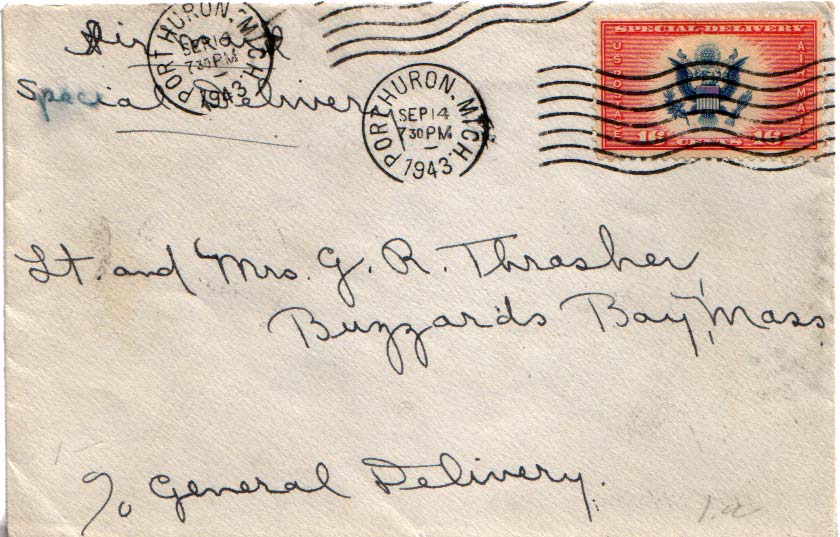 Air Mail
Special Delivery
PORT HURON, MICH.
SEP 14
730 PM
1943
PORT HURON, MICH.
SEP 14
730 PM
1943
SPECIAL DELIVERY
U S POSTAGE
AIR MAIL
16 CENTS 16
Lt. and Mrs. G. R. Thrasher,
Buzzards Bay, Mass.
c/o General Delivery.